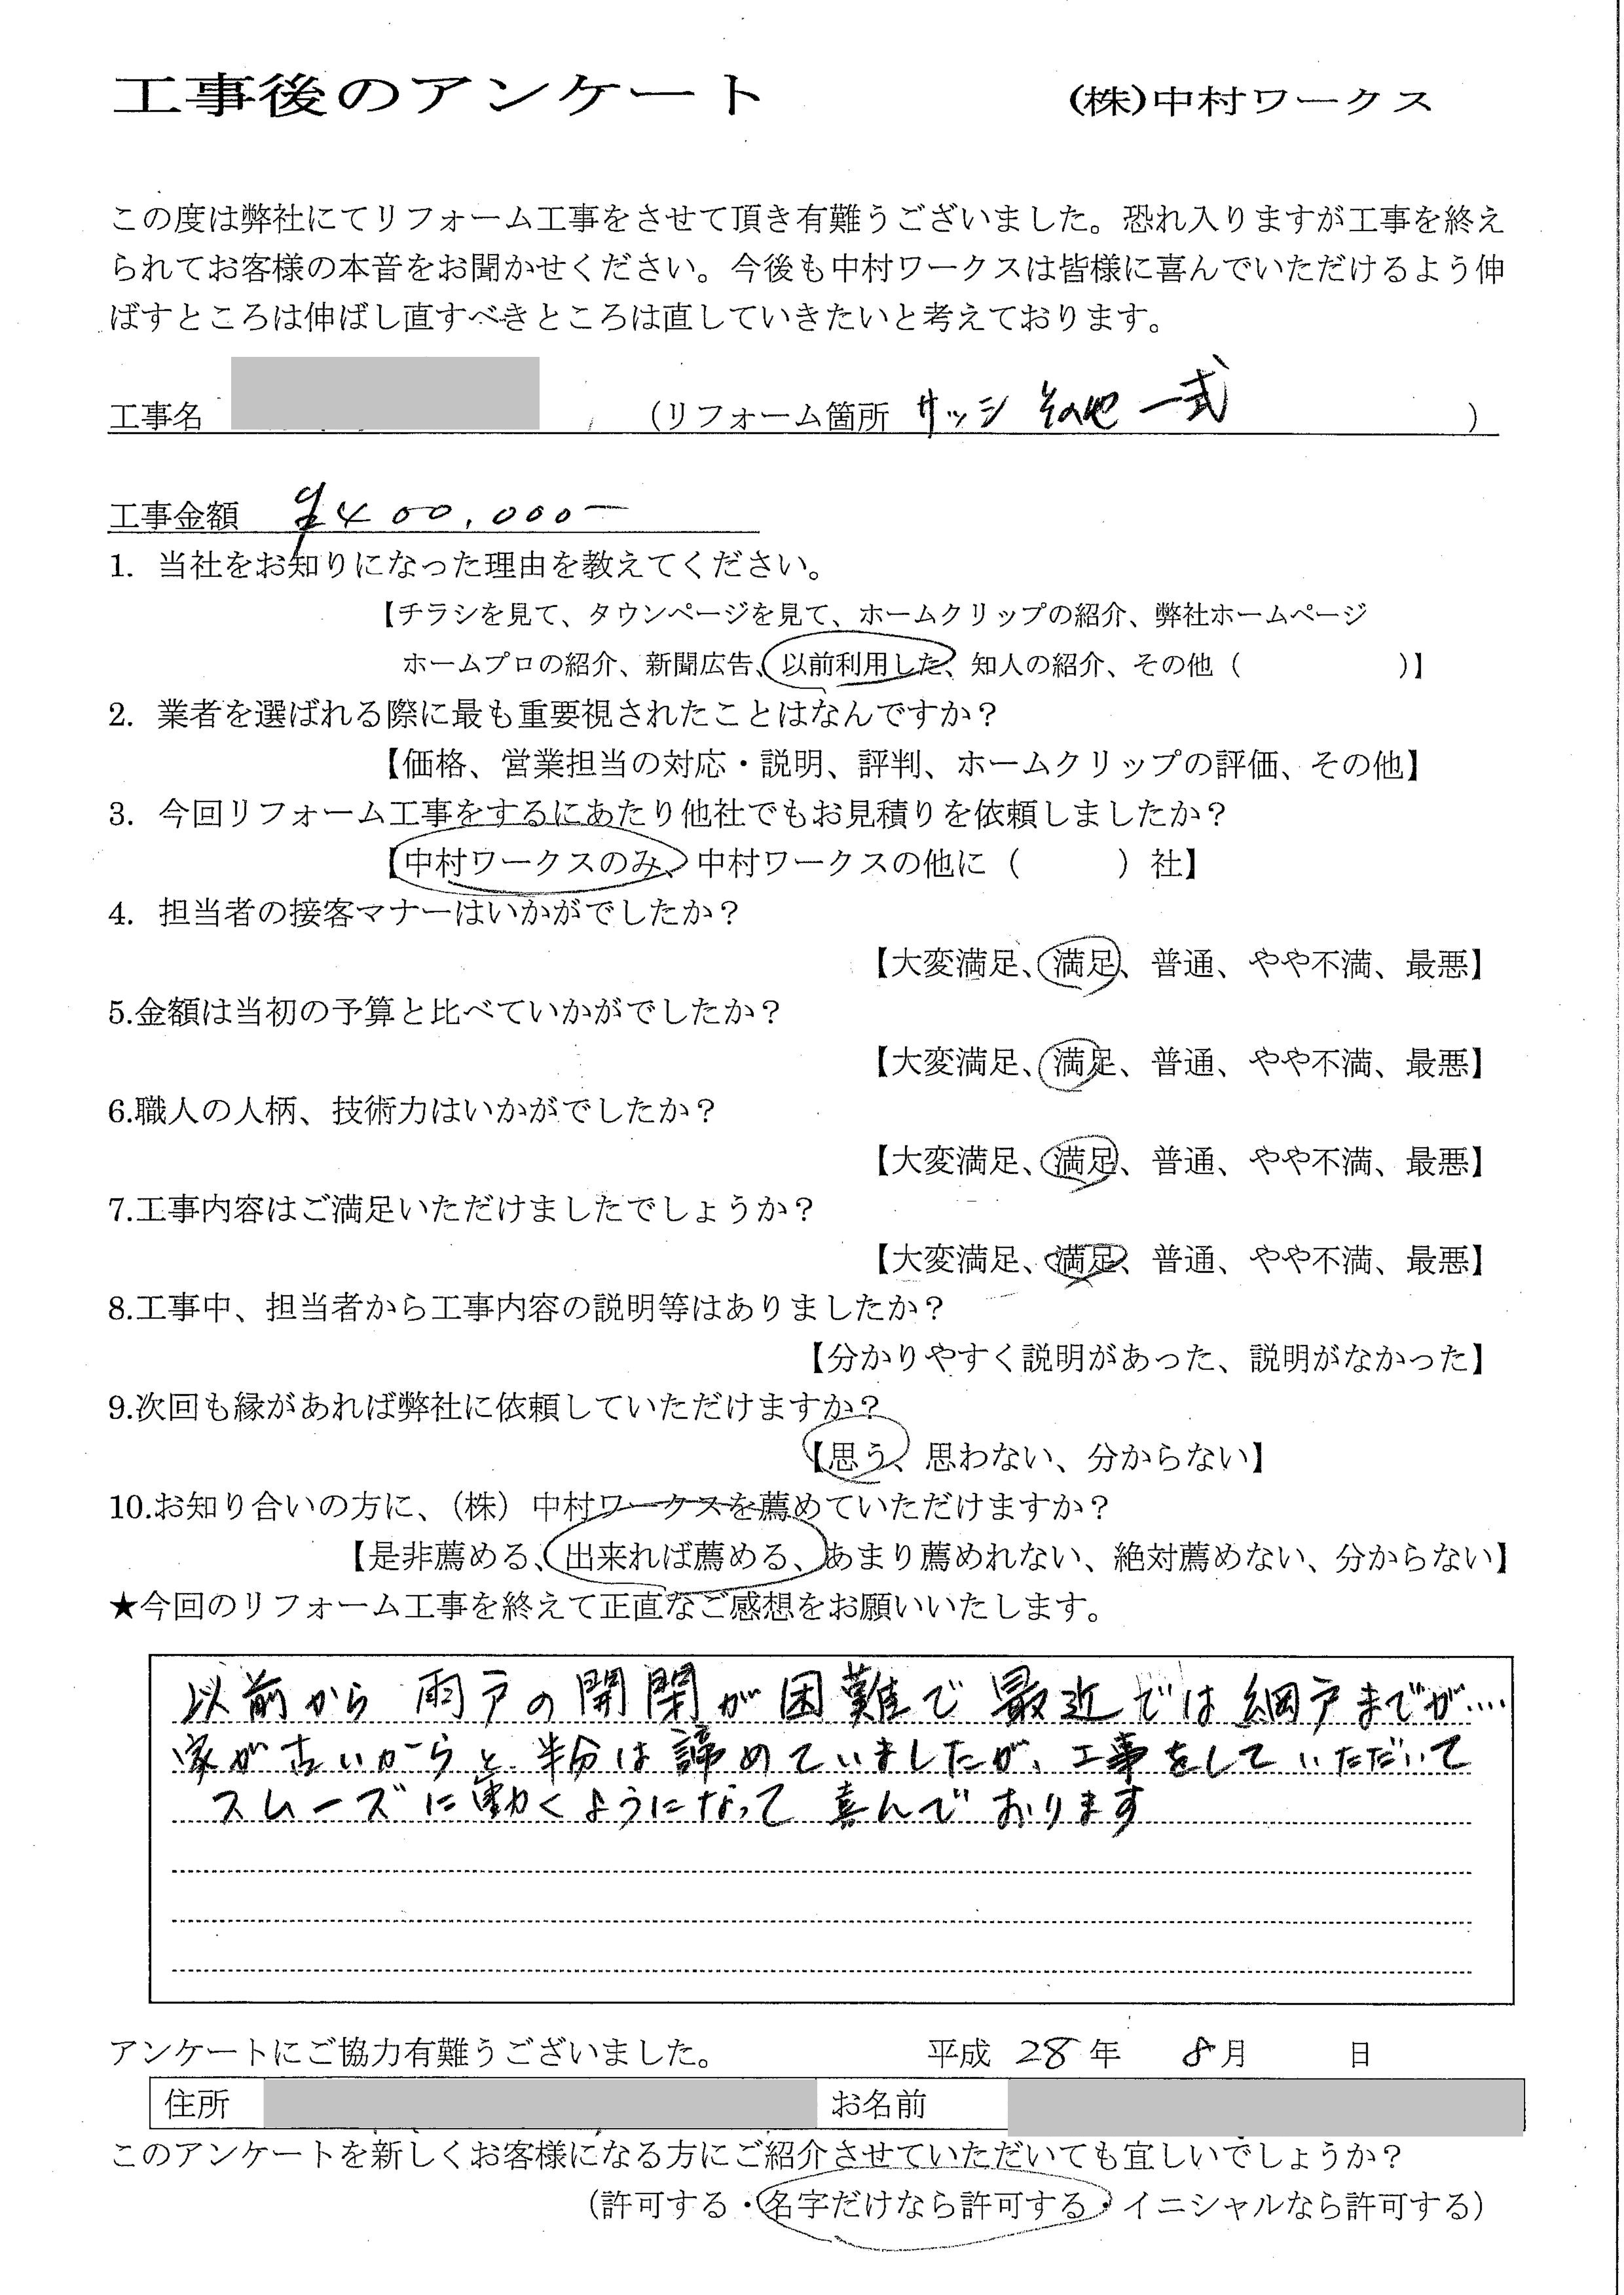 工事後のアンケート　(株)中村ワークス
この度は弊社にてリフォーム工事をさせて頂き有難うございました。恐れ入りますが工事を終え
られてお客様の本音をお聞かせください。今後も中村ワークスは皆様に喜んでいただけるよう伸
ばすところは伸ばし直すべきところは直していきたいと考えております。
工事名　（リフォーム箇所　サッシ その他 一式　）
工事金額　¥400,000ー
1. 当社をお知りになった理由を教えてください。
【チラシを見て、タウンページを見て、ホームクリップの紹介、弊社ホームページ
ホームプロの紹介、新聞広告、以前利用した、知人の紹介、その他（　）】
2. 業者を選ばれる際に最も重要視されたことはなんですか？
【価格、営業担当の対応・説明、評判、ホームクリップの評価、その他】
3. 今回リフォーム工事をするにあたり他社でもお見積りを依頼しましたか？
【中村ワークスのみ、中村ワークスの他に（　）社】
4. 担当者の接客マナーはいかがでしたか？
【大変満足、満足、普通、やや不満、最悪】
5.金額は当初の予算と比べていかがでしたか？
【大変満足、満足、普通、やや不満、最悪】
6.職人の人柄、技術力はいかがでしたか？
【大変満足、満足、普通、やや不満、最悪】
7.工事内容はご満足いただけましたでしょうか？
【大変満足、満足、普通、やや不満、最悪】
8.工事中、担当者から工事内容の説明等はありましたか？
【分かりやすく説明があった、説明がなかった】
9.次回も縁があれば弊社に依頼していただけますか？
【思う、思わない、分からない】
10.お知り合いの方に、（株）中村ワークスを薦めていただけますか？
【是非薦める、出来れば薦める、あまり薦めれない、絶対薦めない、分からない】
★今回のリフォーム工事を終えて正直なご感想をお願いいたします。
以前から 雨戸の開閉が困難で 最近では網戸までが…
家が古いからと 半分は諦めていましたが、工事をしていただいて
スムーズに動くようになって 喜んでおります
アンケートにご協力有難うございました。　平成 28 年 8 月　日
住所　お名前
このアンケートを新しくお客様になる方にご紹介させていただいても宜しいでしょうか？
（許可する・名字だけなら許可する・イニシャルなら許可する）